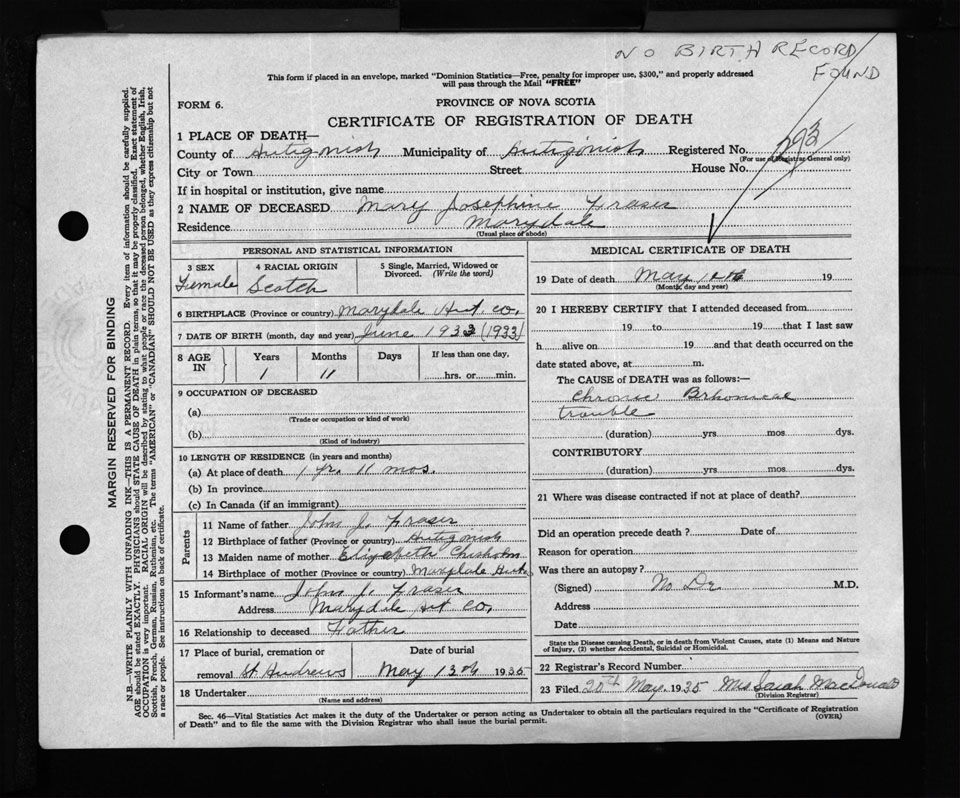 NO BIRTH RECORD
FOUND
This form if placed in an envelope, marked "Dominion Statistics—Free, penalty for improper use, $300," and properly addressed
will pass through the Mail "FREE"
FORM 6.
PROVINCE OF NOVA SCOTIA
CERTIFICATE OF REGISTRATION OF DEATH
1 PLACE OF DEATH—
County of Antigonish Municipality of Antigonish Registered No. 293
(For use of Registrar General only)
City or Town Street House No.
If in hospital or institution, give name
2 NAME OF DECEASED Mary Josephine Fraser
Residence Marydale
(Usual place of abode)
PERSONAL AND STATISTICAL INFORMATION
3 SEX
Female
4 RACIAL ORIGIN
Scotch
5 Single, Married, Widowed or
Divorced. (Write the word)
6 BIRTHPLACE (Province or country) Marydale Ant. Co,
7 DATE OF BIRTH (month, day and year) June 1933 (1933)
8 AGE
IN
Years
1
Months
11
Days
If less than one day,
hrs. or min.
9 OCCUPATION OF DECEASED
(a)
(Trade or occupation or kind of work)
(b)
(Kind of industry)
10 LENGTH OF RESIDENCE (in years and months)
(a) At place of death 1 yr. 11 mos.
(b) In province
(c) In Canada (if an immigrant)
Parents
11 Name of father John J. Fraser
12 Birthplace of father (Province or country) Antigonish
13 Maiden name of mother Elizabeth Chisholm
14 Birthplace of mother (Province or country) Marydale
15 Informant's name John J. Fraser
Address Marydale Ant Co,
16 Relationship to deceased Father
17 Place of burial, cremation or
removal St Andrews
Date of burial
May 13th 1935
18 Undertaker
(Name and address)
MEDICAL CERTIFICATE OF DEATH
19 Date of death May 12th 19
(Month, day and year)
20 I HEREBY CERTIFY that I attended deceased from
19 to 19 that I last saw
h alive on 19 and that death occurred on the
date stated above, at m.
The CAUSE OF DEATH was as follows:—
Chronic
trouble
(duration) yrs mos dys.
CONTRIBUTORY
(duration) yrs mos dys.
21 Where was disease contracted if not at place of death?
Did an operation precede death ? Date of
Reason for operation
Was there an autopsy?
(Signed) No Dr M.D.
Address
Date
State the Disease causing Death, or in death from Violent Causes, state (1) Means and Nature
of Injury, (2) whether Accidental, Suicidal or Homicidal.
22 Registrar's Record Number
23 Filed 20th May 1935 Mrs Sarah MacDonald
(Division Registrar)
Sec. 46—Vital Statistics Act makes it the duty of the Undertaker or person acting as Undertaker to obtain all the particulars required in the "Certificate of Registration
of Death" and to file the same with the Division Registrar who shall issue the burial permit. (OVER)
MARGIN RESERVED FOR BINDING
N.B.—WRITE PLAINLY WITH UNFADING INK—THIS IS A PERMANENT RECORD. Every item of information should be carefully supplied.
AGE should be stated EXACTLY. PHYSICIANS should STATE CAUSE OF DEATH in plain terms, so that it may be properly classified. Exact statement of
OCCUPATION is very important. RACIAL ORIGIN will be described by stating to what people or race the deceased person belonged, whether English, Irish,
Scottish, French, German, Russian, Ruthenian, etc. The terms "AMERICAN" or "CANADIAN" SHOULD NOT BE USED as they express citizenship but not
a race or people. See instructions on back of certificate.